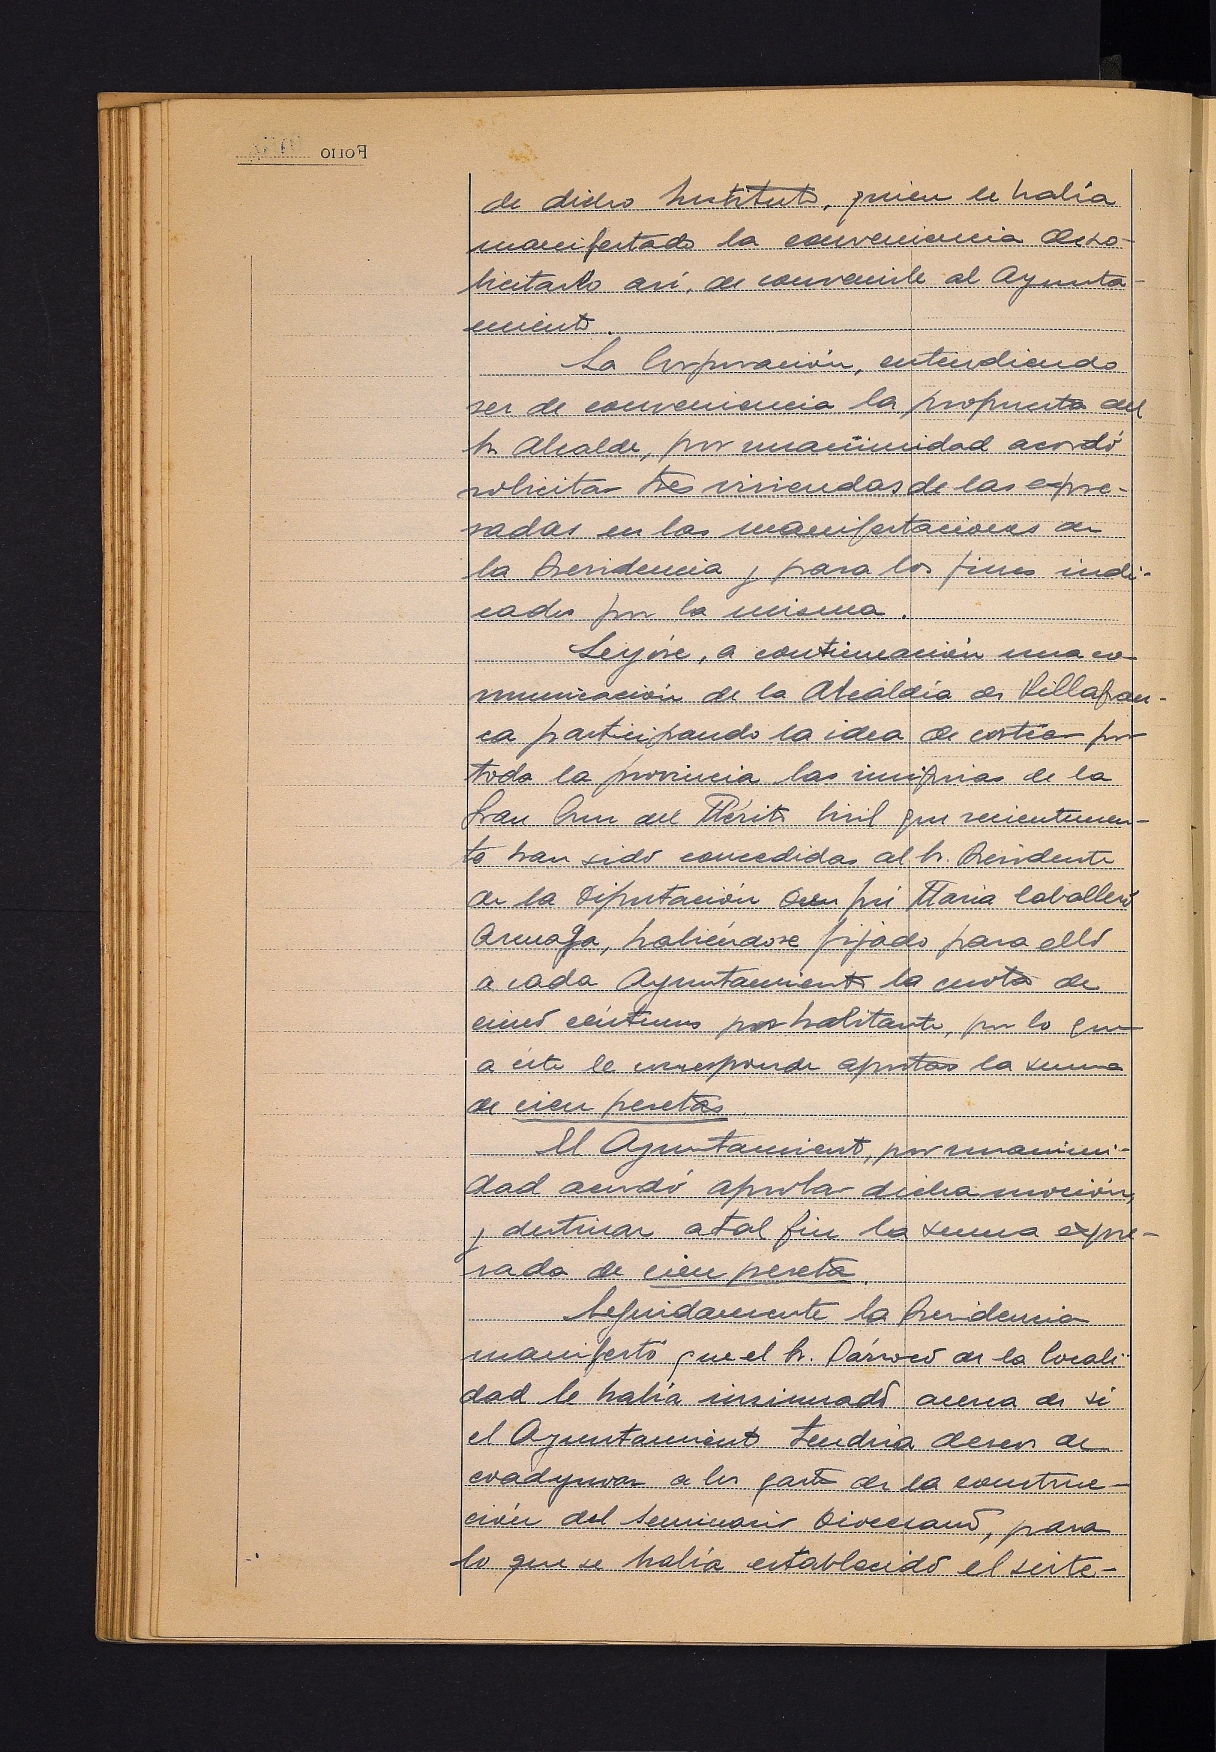 de dicho Instituto, quien le había
manifestado la conveniencia de so-
licitarlo así, de convenirle al Ayunta-
miento.
La Corporación, entendiendo
ser de conveniencia la propuesta del
Sr. Alcalde, por unanimidad acordó
solicitar tres viviendas de las expre-
sadas en las manifestaciones de
la Presidencia y para los fines indi-
cados por la misma.
Leyóse, a continuación una co-
municación de la Alcaldía de Villafran-
ca participando la idea de costear por
toda la provincia las insignias de la
Gran Cruz del Mérito Civil que recientemen-
te han sido concedidas al Sr. Presidente
de la Diputación Don José María Caballero
Arenaga, habiéndose fijado para ello
a cada Ayuntamiento la cuota de
cinco céntimos por habitante, por lo que
a éste le corresponde aportar la suma
de cien pesetas.
El Ayuntamiento, por unanimi-
dad acordó aprobar dicha moción,
y destinar a tal fin la suma expre-
sada de cien pesetas.
Seguidamente la Presidencia
manifestó que el Sr. Párroco de la locali-
dad le había insinuado acerca de si
el Ayuntamiento tendría deseos de
coadyuvar a los gastos de la construc-
ción del Seminario Diocesano, para
lo que se había establecido el siste-
FOLIO